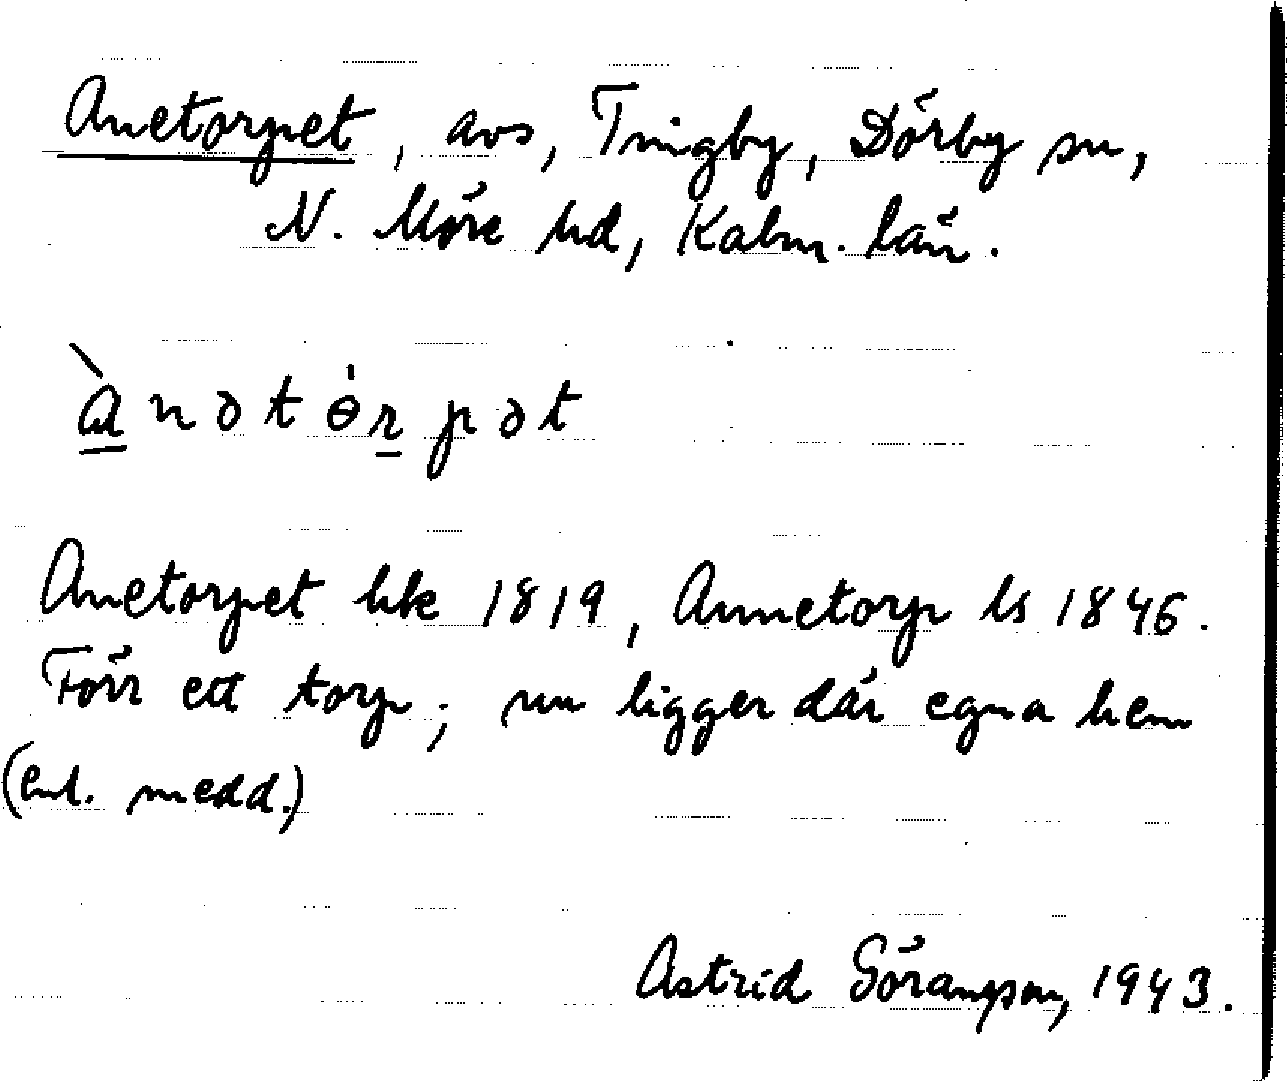 Anetorpet, avs, Tingby, Dörby sn,
N. Möre hd, Kalm. län.
ànətɵ̇rpət
Anetorpet hfk 1819, Annetorp ls 1846.
Förr ett torp; nu ligger där egna hem
(enl. medd.)
Astrid Göransson, 1943.